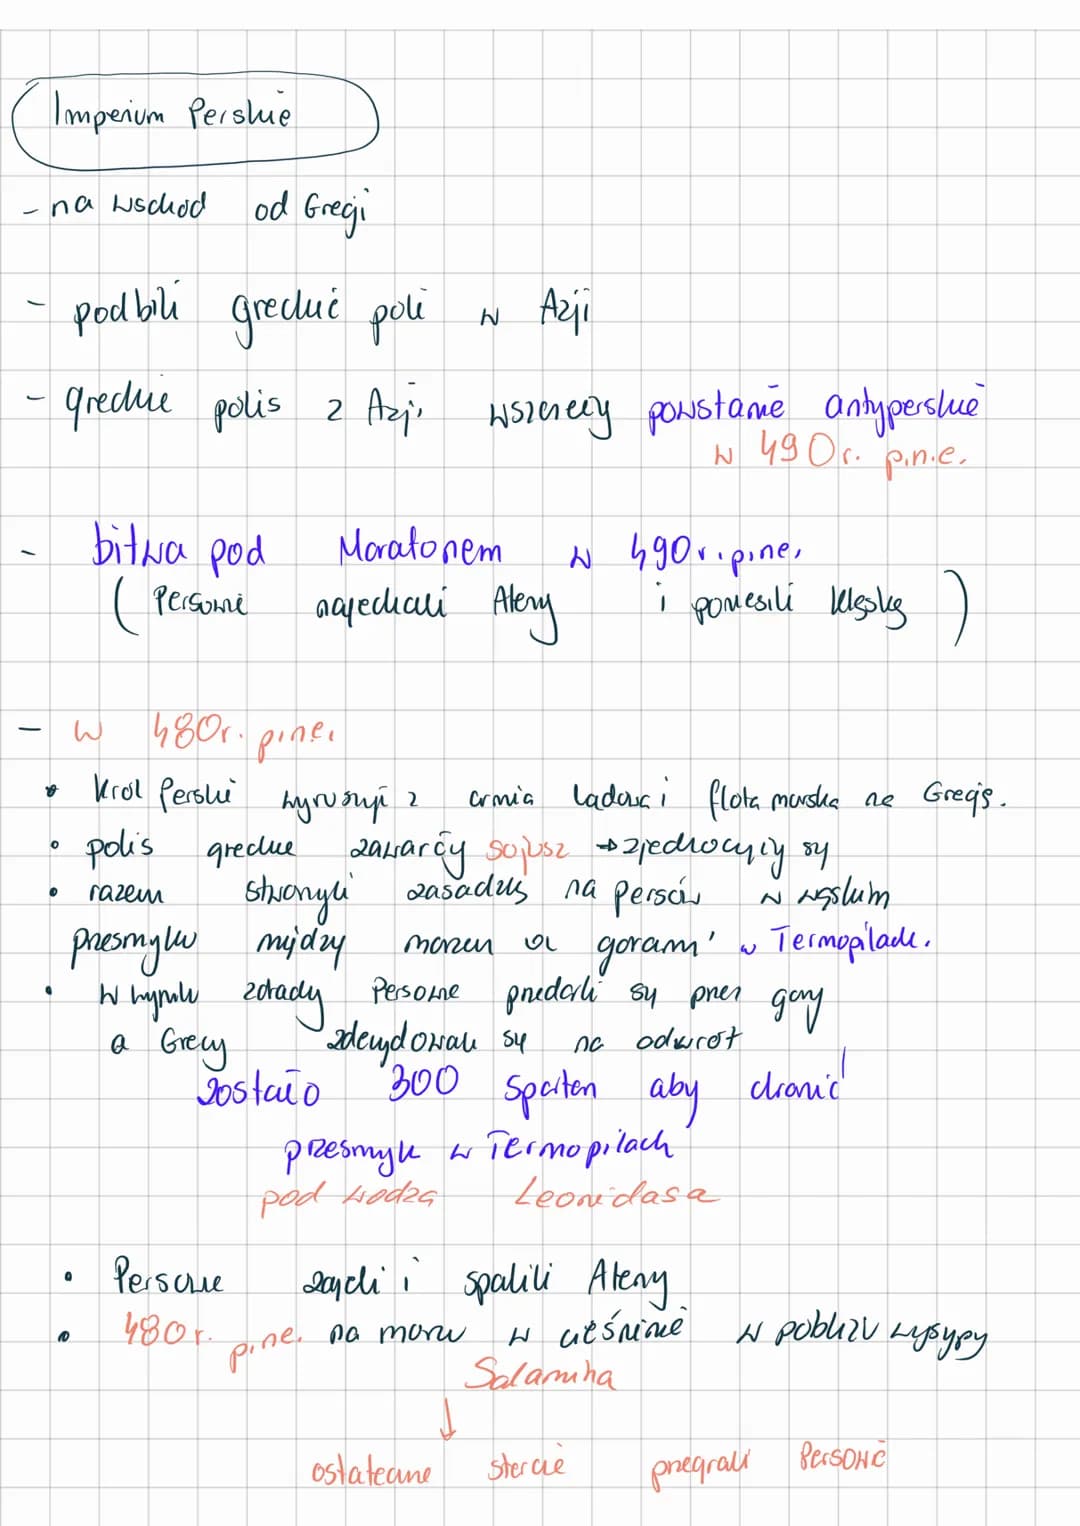 Imperium Perskie
- na wschod od Gregi
- podbili greckie poli w Azji
- greckie polis z Azji wszczeeły powstanie antyperskie
w 490r. p.n.e.
- bitwa pod Maratonem w 490r.p.n.e.
( Persowie najechali Ateny i ponieśili klęskę )
- w 480r. p.n.e.
• Krol Perski wyruszył z armia ladową i flota morska na Grecję.
• polis greckie zawarły sojusz → zjednoczyły sę
• razem stworzyli zasadzkę na persów w wąskim
przesmyku między morzem a gorami w Termopilach.
• W wyniku zdrady Persowie przedarli się przez góry
a Grecy zdecydowali się na odwrot
Zostało 300 Spartan aby chronić
przesmyk w Termopilach
pod wodzą Leonidasa
• Persowie zajęli i spalili Ateny
• 480r. p.n.e. na morzu w cieśninie w pobliżu wyspy
Salamina
↓
ostateczne starcie przegrali Persowie